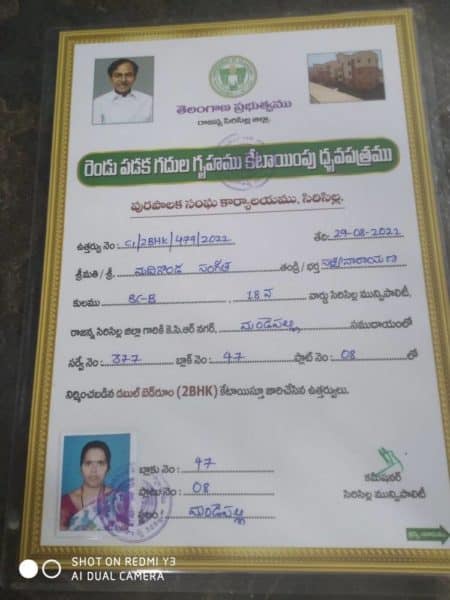 తెలంగాణ ప్రభుత్వము
రాజన్న సిరిసిల్ల జిల్లా.
రెండు పడక గదుల గృహము కేటాయింపు ధృవపత్రము
పురపాలక సంఘ కార్యాలయము, సిరిసిల్ల.
ఉత్తర్వు నెం : S1/2BHK/479/2022 తేది: 29-08-2022
శ్రీమతి / శ్రీ. తండ్రి / భర్త నారాయణ
కులము BC-B , 18 వ వార్డు సిరిసిల్ల మున్సిపాలిటీ,
రాజన్న సిరిసిల్ల జిల్లా గారికి కె.సి.ఆర్ నగర్, మండెపల్లి సముదాయంలో
సర్వే నెం : 377 బ్లాక్ నెం : 47 ప్లాట్ నెం : 08 లో
నిర్మించబడిన డబుల్ బెడ్‌రూం (2BHK) కేటాయిస్తూ జారిచేసిన ఉత్తర్వులు.
బ్లాకు నెం : 47
ప్లాటు నెం : 08
స్థలం : మండెపల్లి
కమీషనర్
సిరిసిల్ల మున్సిపాలిటీ
SHOT ON REDMI Y3
AI DUAL CAMERA